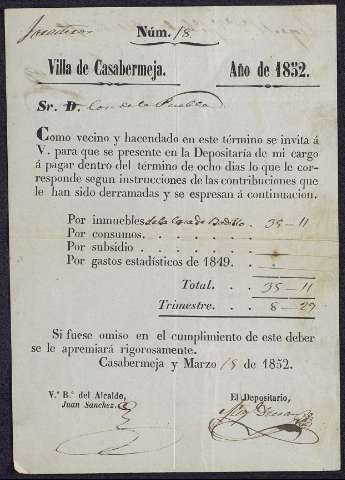 Núm. 18.
Villa de Casabermeja. Año de 1852.
Sr. D. de la Puebla
Como vecino y hacendado en este término se invita á
V. para que se presente en la Depositaría de mi cargo
á pagar dentro del término de ocho dias lo que le cor-
responde segun instrucciones de las contribuciones que
le han sido derramadas y se espresan á continuacion.
Por inmuebles de la Casa de 35-11
Por consumos. . . . .
Por subsidio . . . . .
Por gastos estadísticos de 1849. . .
Total. . . . 35-11
Trimestre. . . . 8-29
Si fuese omiso en el cumplimiento de este deber
se le apremiará rigorosamente.
Casabermeja y Marzo 15 de 1852.
V.º B.º del Alcalde, El Depositario,
Juan Sanchez.